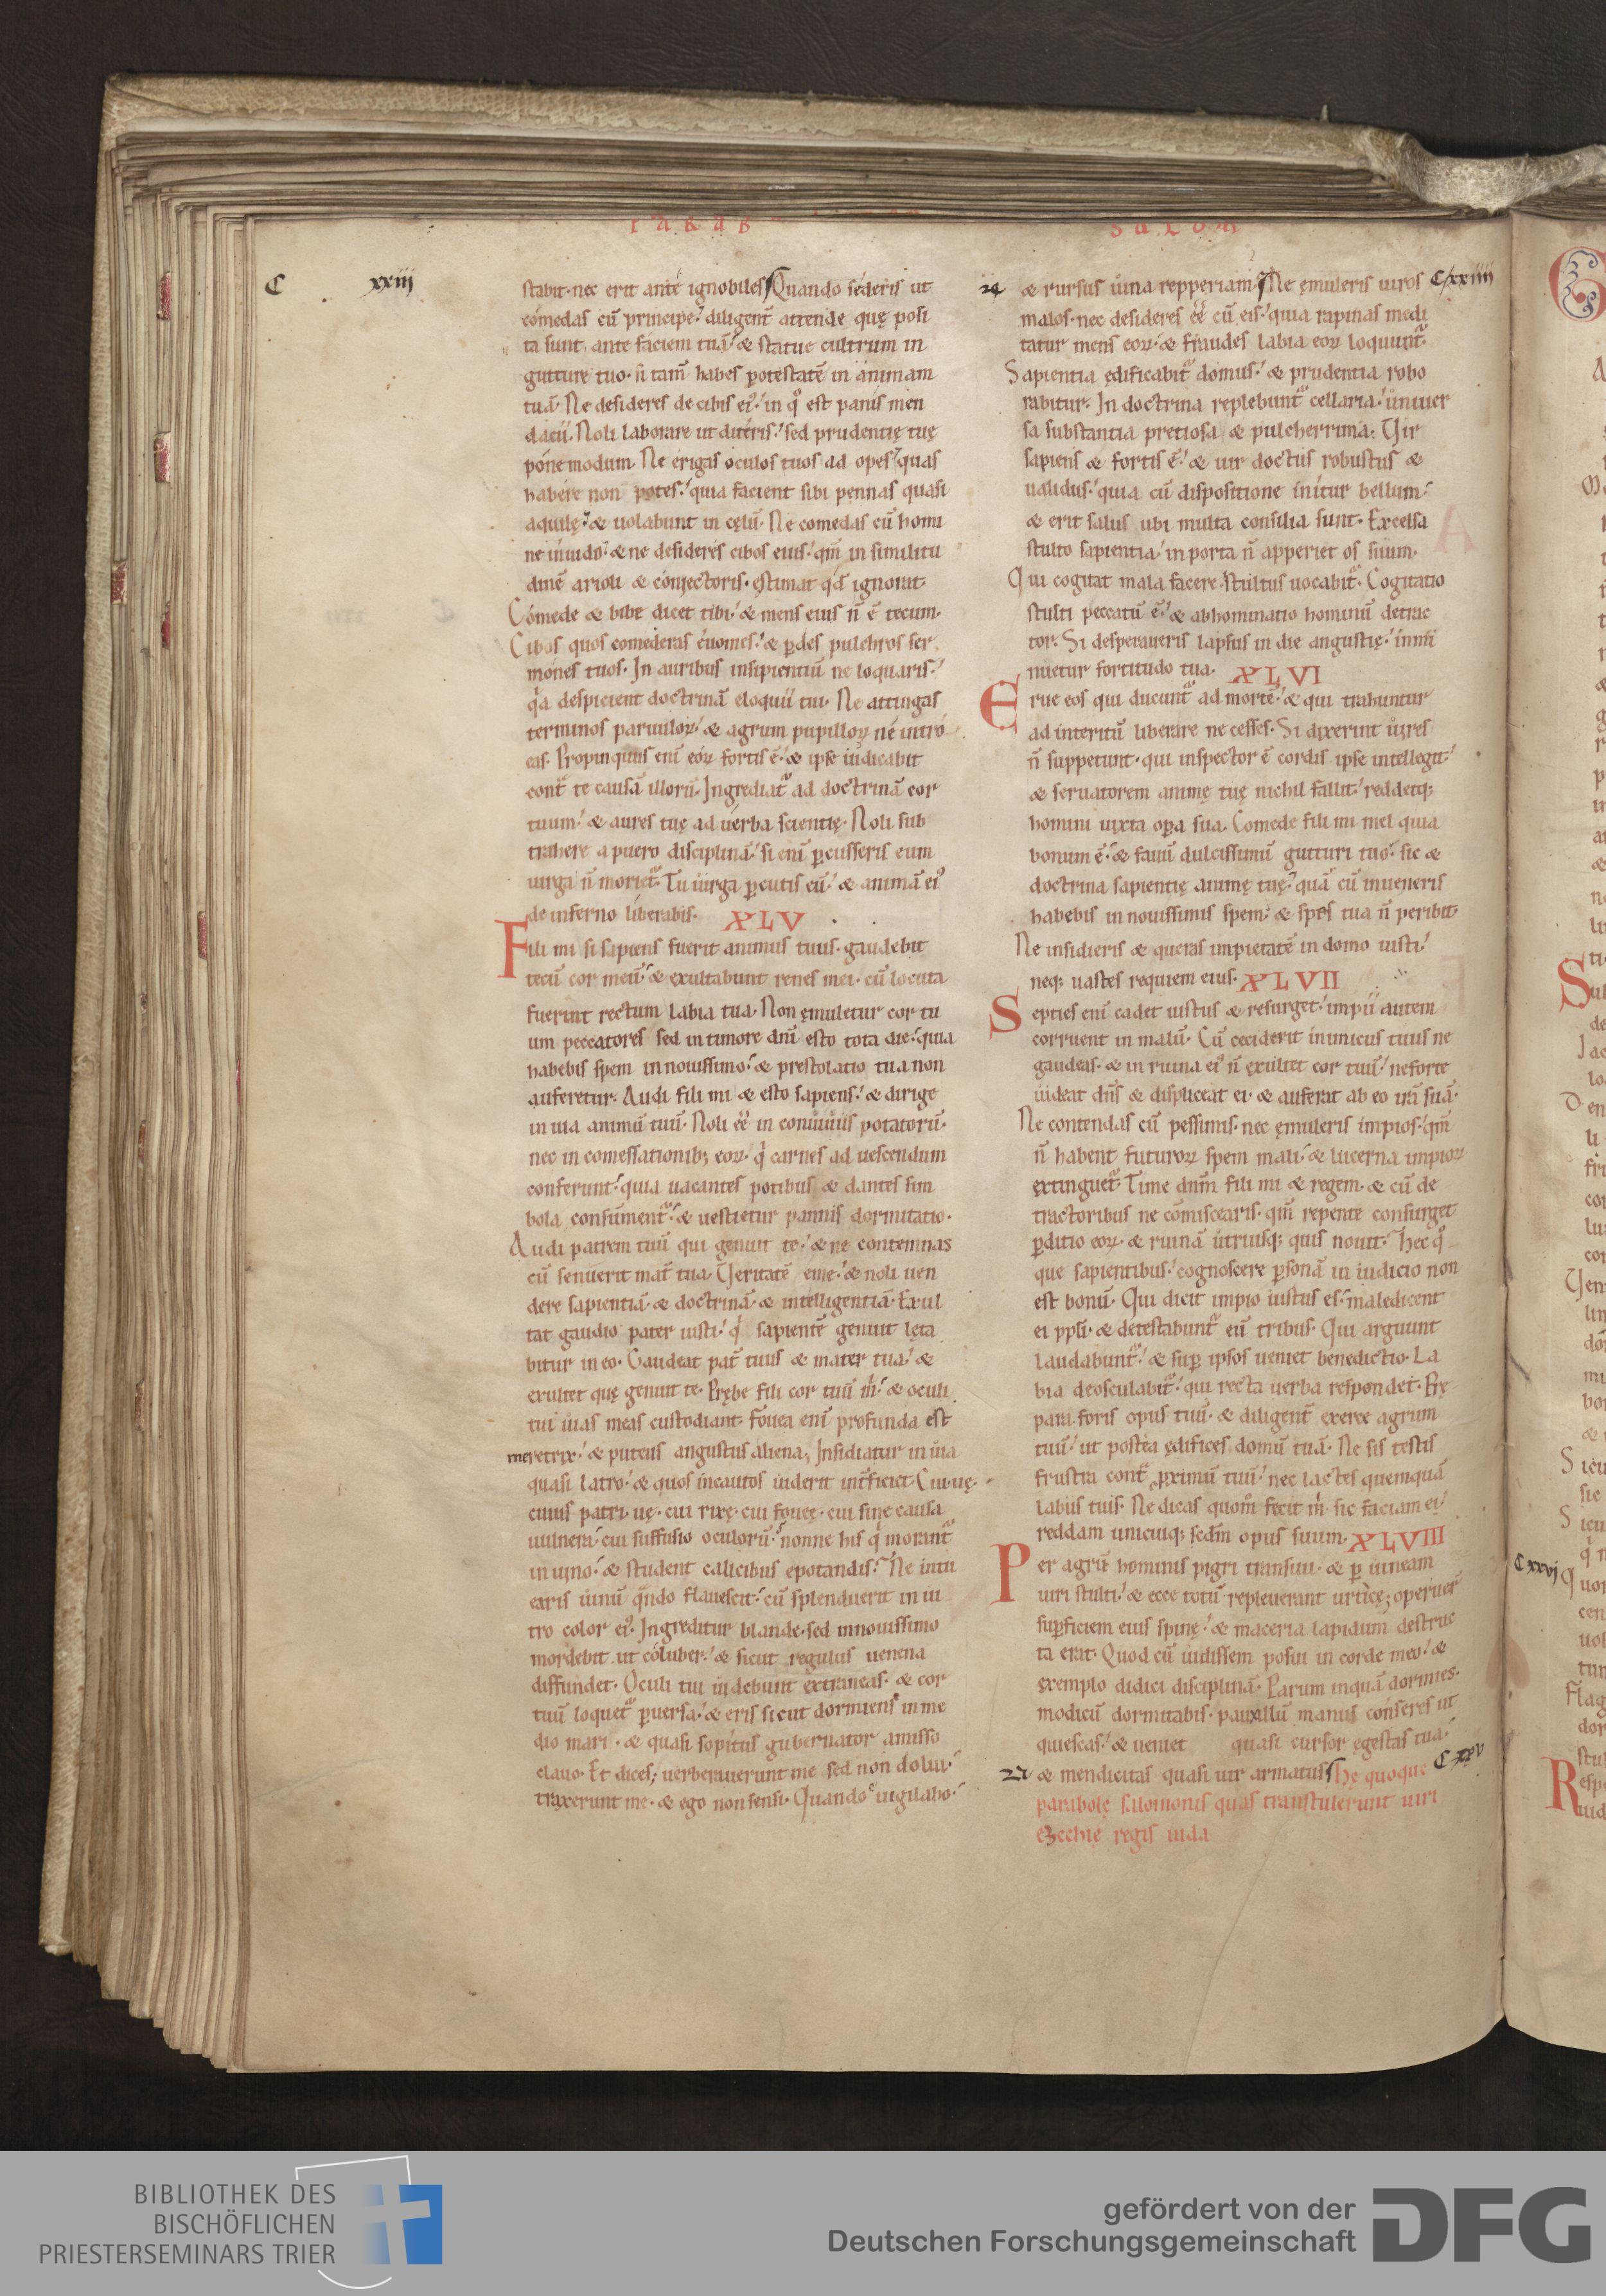 PARAB
SALOM
C xxiii
stabit· nec erit ante ignobiles Quando sederis ut
comedas cū principe·' diligent̄ attende quę posi
ta sunt ante faciem tuā·' & statue cultrum in
gutture tuo· si tam̄ habes potestatē in animam
tuā· Ne desideres de cibis ei'·' in q° est panis men
dacii· Noli laborare ut diteris·' sed prudentię tuę
pone modum· Ne erigas oculos tuos ad opes·' quas
habere non potes·' quia facient sibi pennas quasi
aquilę·' & uolabunt in cęlū· Ne comedas cū homi
ne inuido·' & ne desideres cibos eius·' qm̄ in similitu
dinē arioli & coniectoris· ęstimat qd̄ ignorat·
Comede & bibe dicet tibi·' & mens eius n̄ ē tecum·
Cibos quos comederas euomes·' & ꝑdes pulchros ser
mones tuos· In auribus insipientiū ne loquaris·'
q̇a despicient doctrinā eloquii tui· Ne attingas
terminos paruuloꝝ·' & agrum pupilloꝝ ne intro
eas· Propinquus eni eoꝝ fortis ē·' & ipse iudicabit
cont̄ te causā illorū· Ingrediat̄ ad doctrinā cor
tuum·' & aures tuę ad uerba scientię· Noli sub
trahere a puero disciplinā·' si eni ꝑcusseris eum
uirga n̄ moriet̄· Tu uirga ꝑcutis eū·' & animā ei'
de inferno liberabis· XLV
Fili mi si sapiens fuerit animus tuus· gaudebit
tecū cor meū·' & exultabunt renes mei· cū locuta
fuerint rectum labia tua· Non ęmuletur cor tu
um peccatores sed in timore dn̄i esto tota die·' quia
habebis spem in nouissimo·' & prestolatio tua non
auferetur· Audi fili mi & esto sapiens·' & dirige
in uia animū tuū· Noli ēē in conuiuiis potatorū·
nec in comessationib; eoꝝ· q̇ carnes ad uescendum
conferunt·' quia uacantes potibus & dantes sim
bola consument̄·' & uestietur pannis dormitatio·
Audi patrem tuū qui genuit te·' & ne contemnas
cū senuerit mat̄ tua· Ueritatē eme·' & noli uen
dere sapientiā· & doctrinā· & intelligentiā· Exul
tat gaudio pater iusti·' q̇ sapientē genuit lęta
bitur in eo· Gaudeat pat̄ tuus & mater tua·' &
exultet quę genuit te· Prębe fili cor tuū ṁ·' & oculi
tui uias meas custodiant· Fouea eni profunda est
meretrix·' & puteus angustus aliena· Insidiatur in uia
quasi latro·' & quos incautos uiderit int̄ficiet· Cui uę·
cuius patri uę· cui rixę· cui foueę· cui sine causa
uulnera·' cui suffusio oculorū·' nonne his q̇ morant̄
in uino·' & student calicibus epotandis· Ne intu
earis uinū qn̄do flauescit·' cū splenduerit in ui
tro color ei'· Ingreditur blande· sed in nouissimo
mordebit ut coluber·' & sicut regulus uenena
diffundet· Oculi tui uidebunt extraneas· & cor
tuū loquet̄ ꝑuersa·' & eris sicut dormiens in me
dio mari· & quasi sopitus gubernator amisso
clauo· Et dices; uerberauerunt me sed non dolui·'
traxerunt me· & ego non sensi· Quando euigilabo·'
24 & rursus uina repperiam· Ne ęmuleris uiros C xxiiii
malos· nec desideres ēē cū eis·' quia rapinas medi
tatur mens eoꝝ·' & fraudes labia eoꝝ loquunt̄·
Sapientia ędificabit̄ domus·' & prudentia robo
rabitur· In doctrina replebunt̄ cellaria·' uniuer
sa substantia pretiosa & pulcherrima· Uir
sapiens & fortis ē·' & uir doctus robustus &
ualidus·' quia cū dispositione initur bellum·'
& erit salus ubi multa consilia sunt· Excelsa
stulto sapientia·' in porta n̄ apperiet os suum·
Qui cogitat mala facere·' stultus uocabit̄· Cogitatio
stulti peccatū ē·' & abhominatio hominū detrac
tor· Si desperaueris lapsus in die angustię·' inmi
nuetur fortitudo tua· XLVI
Erue eos qui ducunt̄ ad mortē·' & qui trahuntur
ad interitū liberare ne cesses· Si dixerint uires
n̄ suppetunt· qui inspector ē cordis ipse intellegit·'
& seruatorem animę tuę nichil fallit·' reddetq;
homini iuxta oꝑa sua· Comede fili mi mel quia
bonum ē·' & fauū dulcissimū gutturi tuo·' sic &
doctrina sapientię animę tuę·' quā cū inueneris
habebis in nouissimis spem·' & spes tua n̄ peribit·
Ne insidieris & queras impietatē in domo iusti·'
neq; uastes requiem eius· XLVII
Septies eni cadet iustus & resurget·' impii autem
corruent in malū· Cū ceciderit inimicus tuus ne
gaudeas· & in ruina ei' n̄ exultet cor tuū·' ne forte
uideat dn̄s & displiceat ei· & auferat ab eo irā suā·
Ne contendas cū pessimis· nec ęmuleris impios·' qm̄
n̄ habent futuroꝝ spem mali·' & lucerna impioꝝ
extinguet̄· Time dn̄m fili mi & regem· & cū de
tractoribus ne cōmiscearis· qm̄ repente consurget
ꝑditio eoꝝ· & ruinā utriusq; quis nouit· Hec q°
que sapientibus·' cognoscere ꝑsonā in iudicio non
est bonū· Qui dicit impio iustus es·' maledicent
ei ppli· & detestabunt̄ eū tribus· Qui arguunt
laudabunt̄·' & suꝑ ipsos ueniet benedictio· La
bia deosculabit̄·' qui recta uerba respondet· Pre
para foris opus tuū· & diligent̄ exerce agrum
tuū·' ut postea ędifices domū tuā· Ne sis testis
frustra cont̄ proximū tuū·' nec lactes quemquā
labiis tuis· Ne dicas quom̄ fecit ṁ· sic faciam ei·'
reddam unicuiq; sedm̄ opus suum· XLVIII
Per agrū hominis pigri transiui· & ꝑ uineam
uiri stulti·' & ecce totū repleuerant urticę; operuer̄
suꝑficiem eius spinę·' & maceria lapidum destruc
ta erat· Quod cū uidissem posui in corde meo·' &
exemplo didici disciplinā· Parum inquā dormies·
modicū dormitabis· pauxillū manus conseres ut
quiescas·' & ueniet quasi cursor egestas tua·'
& mendicitas quasi uir armatus Hę quoque C xxv
parabolę salomonis quas transtulerunt uiri
ezechię regis iuda
C xxvj
BIBLIOTHEK DES
BISCHÖFLICHEN
PRIESTERSEMINARS TRIER
gefördert von der
Deutschen Forschungsgemeinschaft
DFG